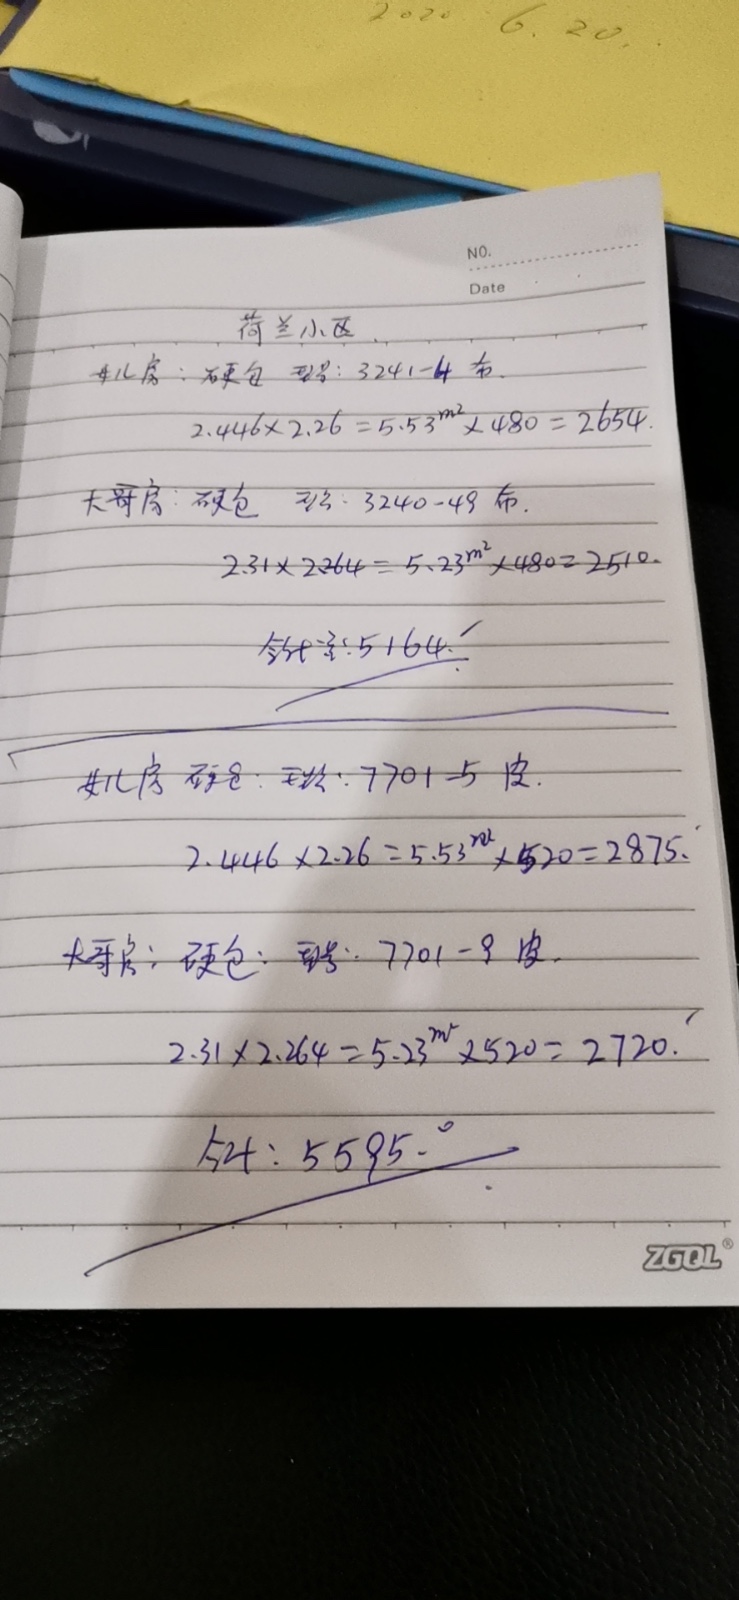 2020.6.20.
NO.
Date
荷兰小区
女儿房：硬包 型号：3241-4 布.
2.446×2.26=5.53m²×480=2654.
大哥房：硬包 型号：3240-49 布.
2.31×2.264=5.23m²×480=2510.
合计:5164.
女儿房 硬包：型号：7701-5 皮.
2.446×2.26=5.53m²×520=2875.
大哥房：硬包：型号：7701-9 皮.
2.31×2.264=5.23m²×520=2720.
合计：5595.
ZGQL®